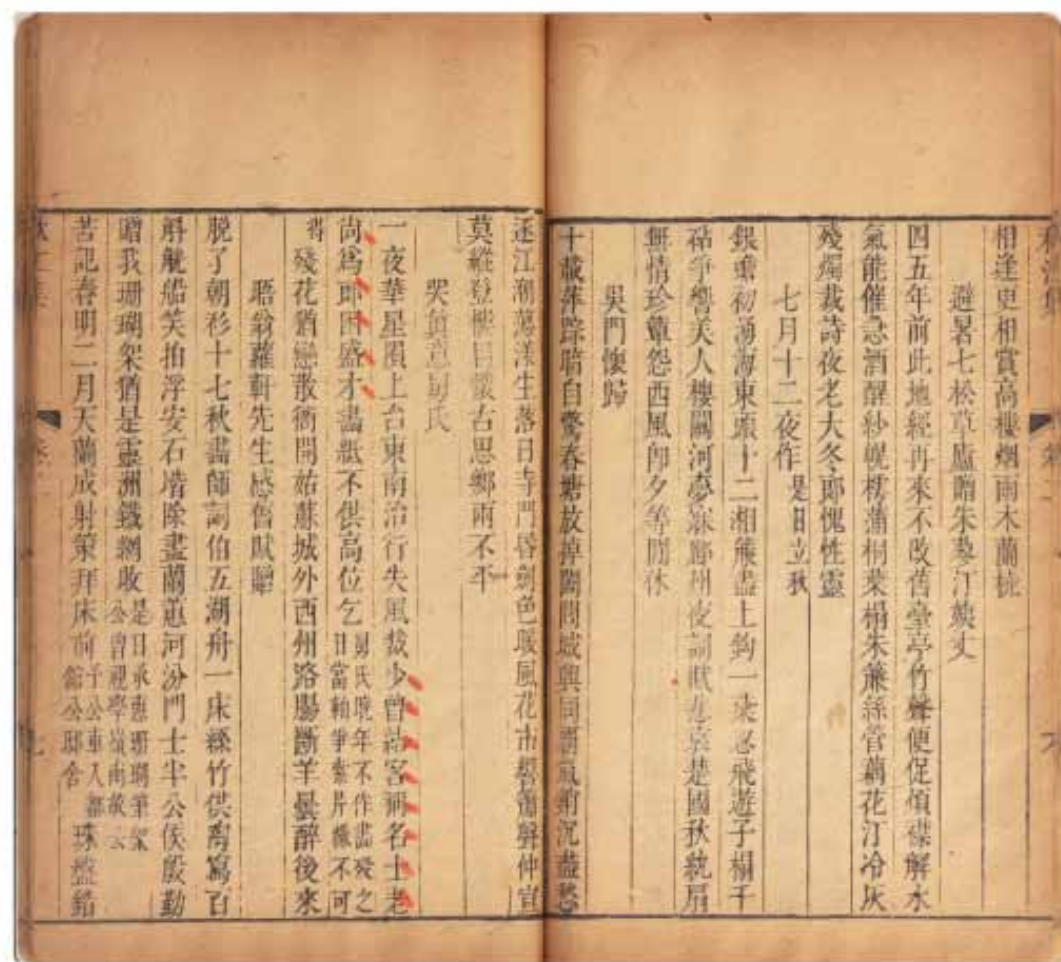 相逢更相賞高樓烟雨木蘭
避暑七松草廬贈朱 汀 丈
四五年前此地經再來不改舊臺亭竹聲便促煩襟解水
氣能催急酒醒紗幌樗蒲桐葉榻朱簾絲管藕花汀冷灰
殘燭裁詩夜老大冬郎愧性靈
七月十二夜作是日立秋
銀蟾初湧海東頭十二湘簾盡上鈎一葉忽飛遊子榻千
砧爭響美人樓關河夢 鄜州夜詞賦悲哀楚國秋紈扇
無情珍簟怨西風即夕等閒休
吳門懷歸
十載萍踪暗自驚春塘放棹闔閭城興同霸氣銷沉盡愁
逐江潮蕩漾生落日寺門昏劍色暖風花市 簫聲仲宣
莫縱登樓目懷古思鄉兩不平
哭 舅氏
一夜華星隕上台東南治行失風裁少曾 客稱名士老
尚為郎困盛才畫紙不供高位乞舅氏晚年不作畫歿之
日當軸爭索片縑不可
得殘花猶戀散衙開姑蘇城外西州路腸斷羊曇醉後來
晤翁蘿軒先生感舊賦贈
脫了朝衫十七秋畫師詞伯五湖舟一床絲竹供陶寫百
斛觥船笑拍浮安石堦除盡蘭蕙河汾門士半公侯殷勤
贈我珊瑚架猶是靈洲鐵網收是日承惠珊瑚筆架
公曾視學嶺南故云
苦記春明二月天蘭成射策拜床前 公車入都
館公邸舍珠盤錯